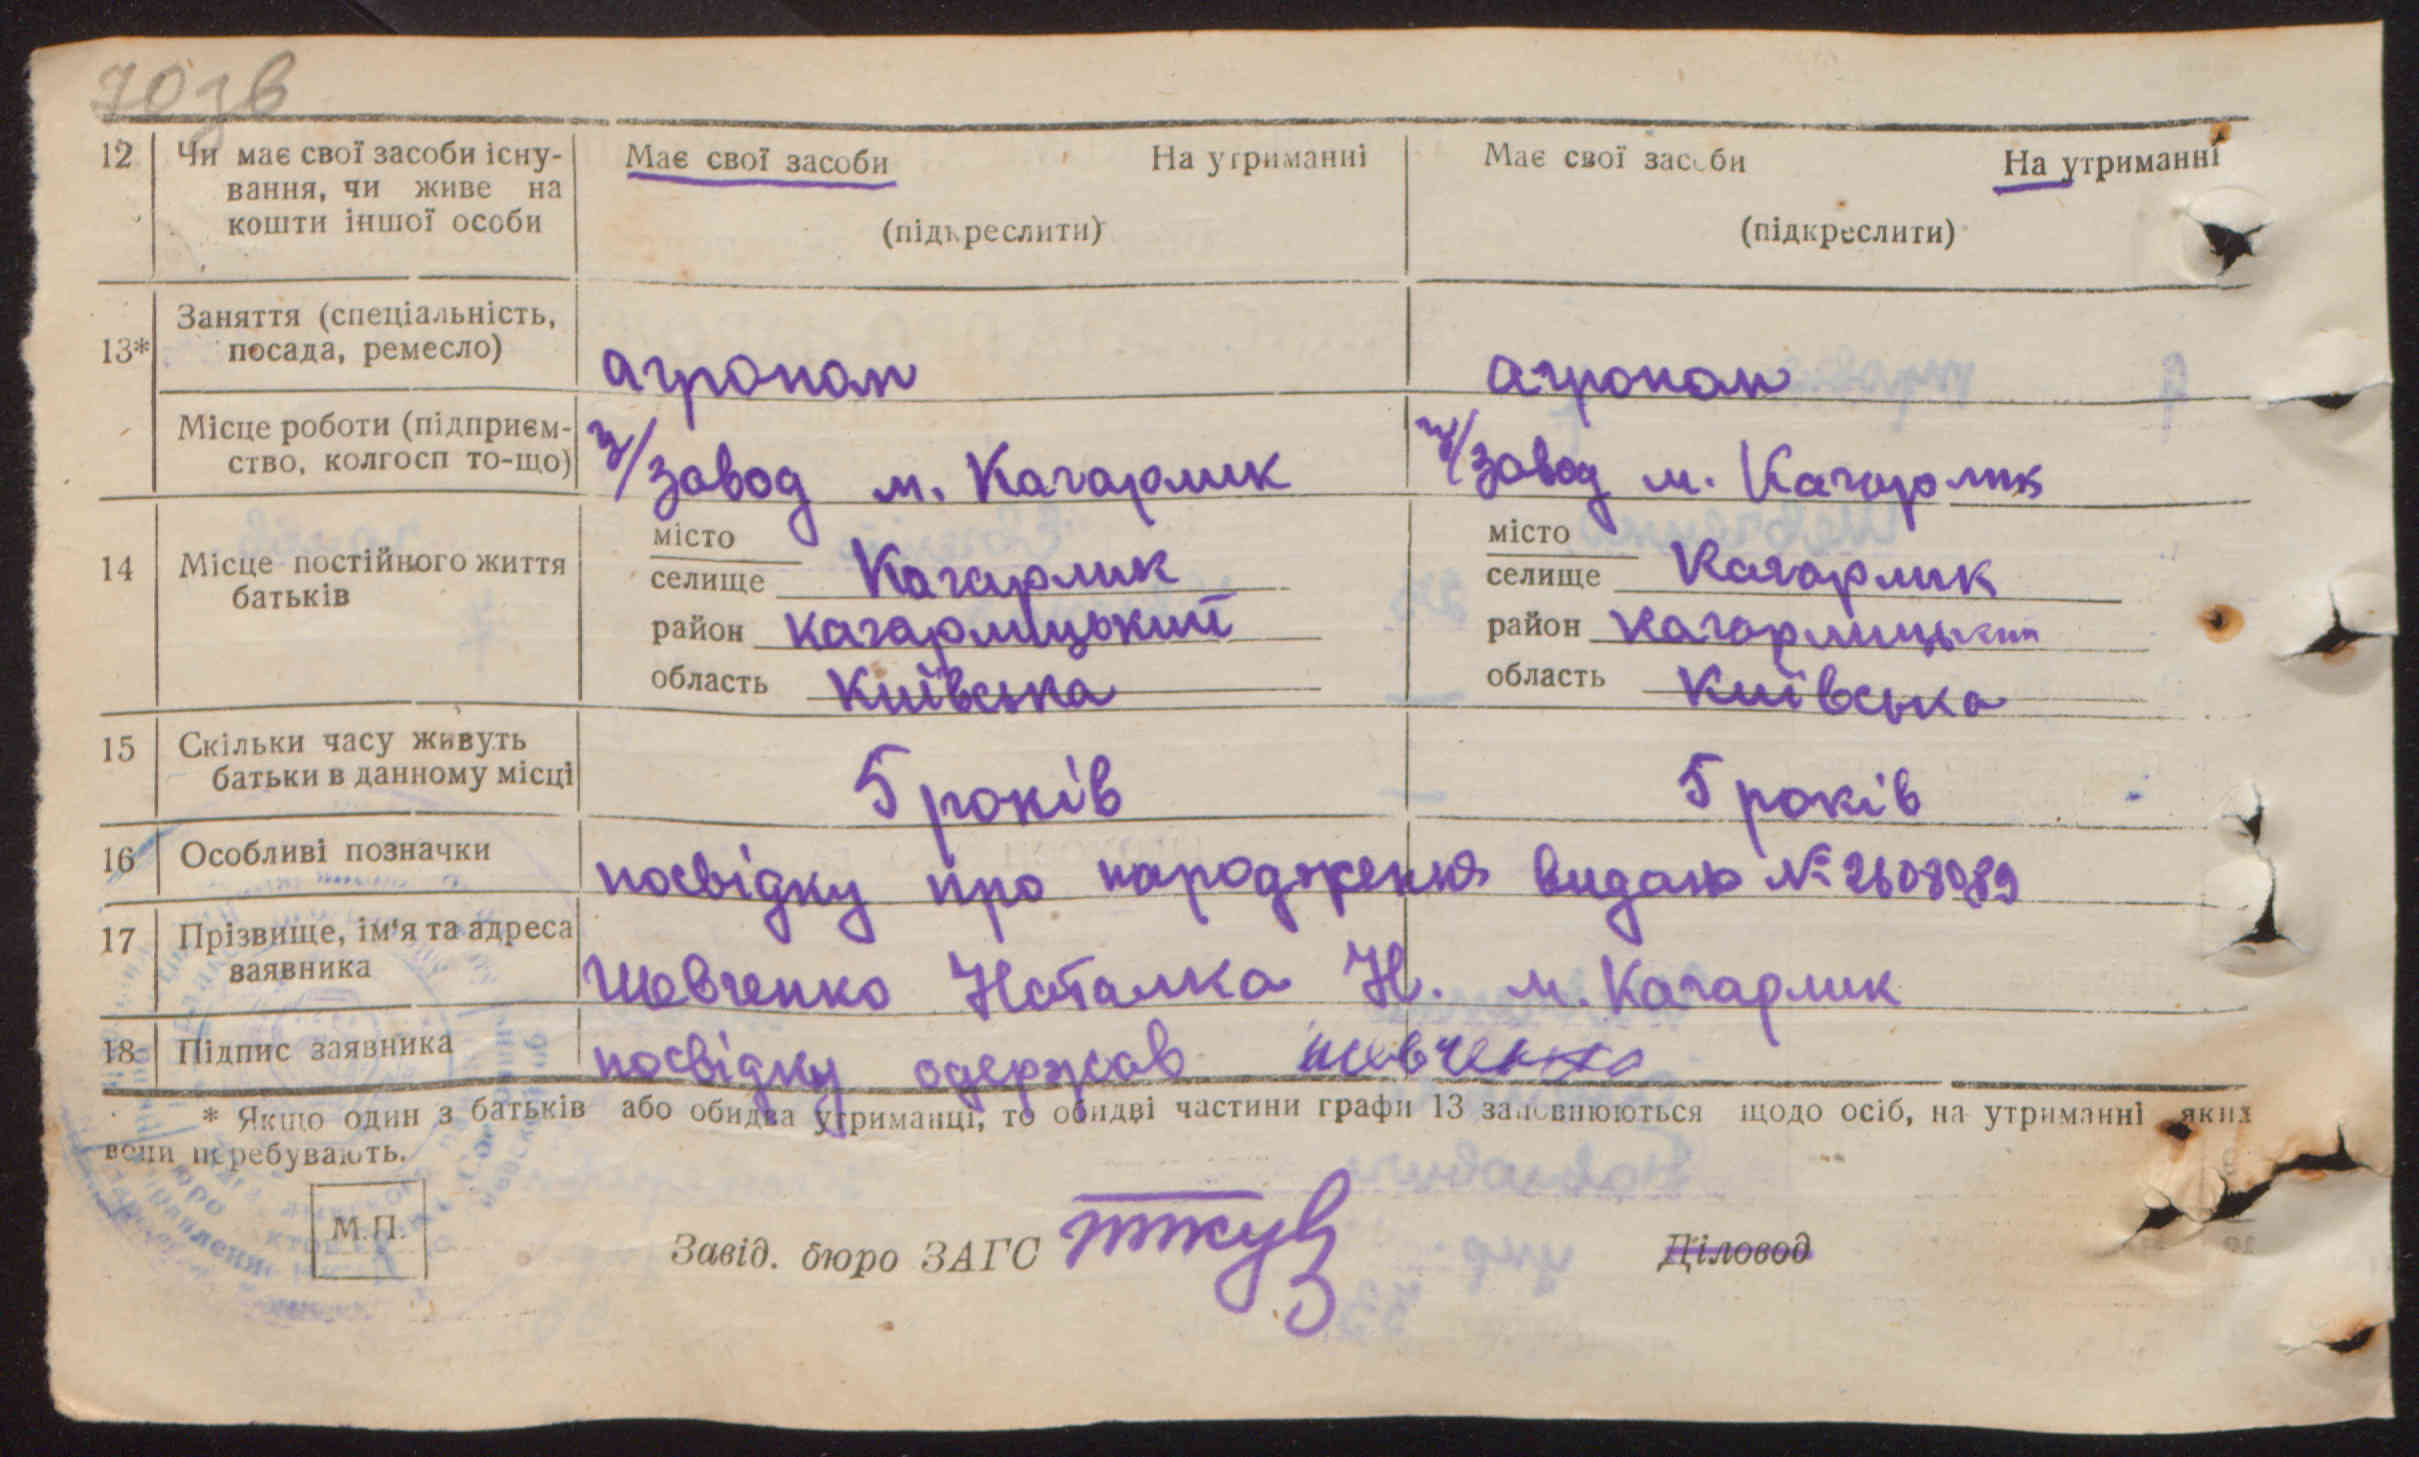 70зв
12 Чи має свої засоби існу- Має свої засоби На утриманні Має свої засоби На утриманні
вання, чи живе на
кошти іншої особи (підкреслити) (підкреслити)
Заняття (спеціальність,
13* посада, ремесло) агроном агроном
Місце роботи (підприєм-
ство, колгосп то-що) ц/завод м. Кагарлик ц/завод м. Кагарлик
місто місто
14 Місце постійного життя селище Кагарлик селище Кагарлик
батьків
район кагарлицький район кагарлицький
область Київська область Київська
15 Скільки часу живуть
батьки в данному місці 5 років 5 років
16 Особливі позначки посвідку про народження видано № 2608089
17 Прізвище, ім'я та адреса
заявника Шевченко Наталка Н. м. Кагарлик
18 Підпис заявника посвідку одержав шевченко
* Якщо один з батьків або обидва утриманці, то обидві частини графи 13 заповнюються щодо осіб, на утриманні яких
вони перебувають.
М.П.
Завід. бюро ЗАГС Діловод